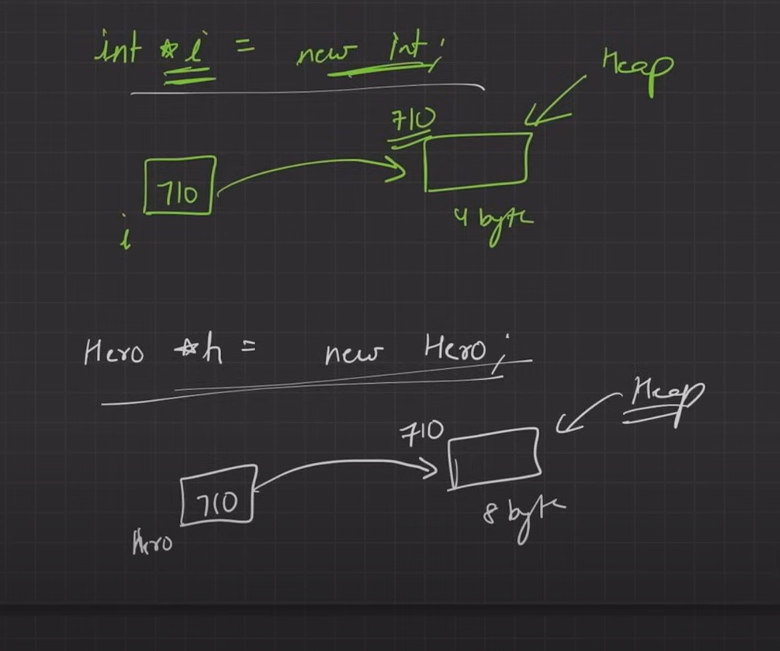 int *i = new int;
Heap
710
710
i
4 byte
Hero *h = new Hero;
Heap
710
710
8 byte
Hero